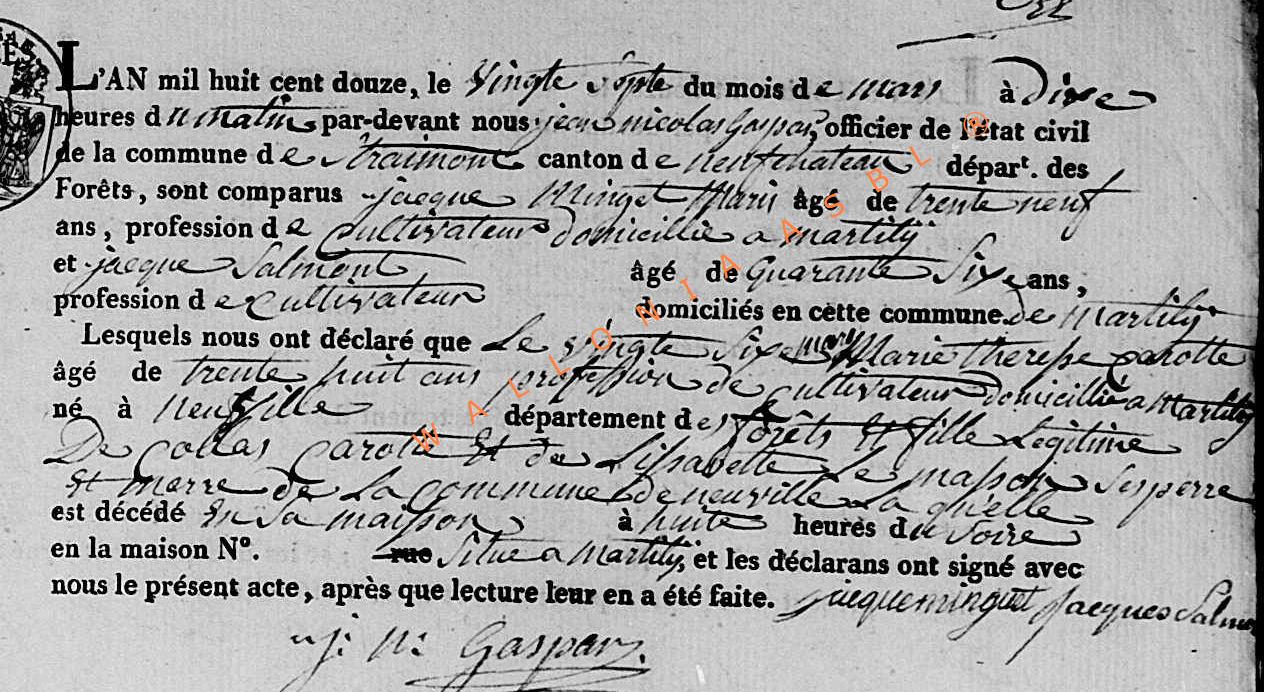 L'AN mil huit cent douze, le vingte septe du mois de mars à dixe
heures du matin par-devant nous jean nicolas Gaspar, officier de l'état civil
de la commune de Straimont canton de neufchateau départ. des
Forêts, sont comparus jacque Minget Maris âgé de trente neuf
ans, profession de cultivateur domicillié a martilÿ
et jacque Salmont âgé de Quarante Six ans,
profession de cultivateur domiciliés en cette commune de Martilÿ
Lesquels nous ont déclaré que Le vingte Six mars Marie theresse carotte
âgé de trente huit ans profession de cultivateur domicillié a Martilÿ
né à Neufville département des forêts et fille Legitime
De collas carotte Et de Lissabette Le masson Ses perre
Et merre de La commune de neuville La quelle
est décédé En Sa maison à huite heures du Soire
en la maison N°. rue Situe a Martilÿ, et les déclarans ont signé avec
nous le présent acte, après que lecture leur en a été faite. jacqueminguet Jacques Salmon
j. n. Gaspar
WALLONIA ASBL ®